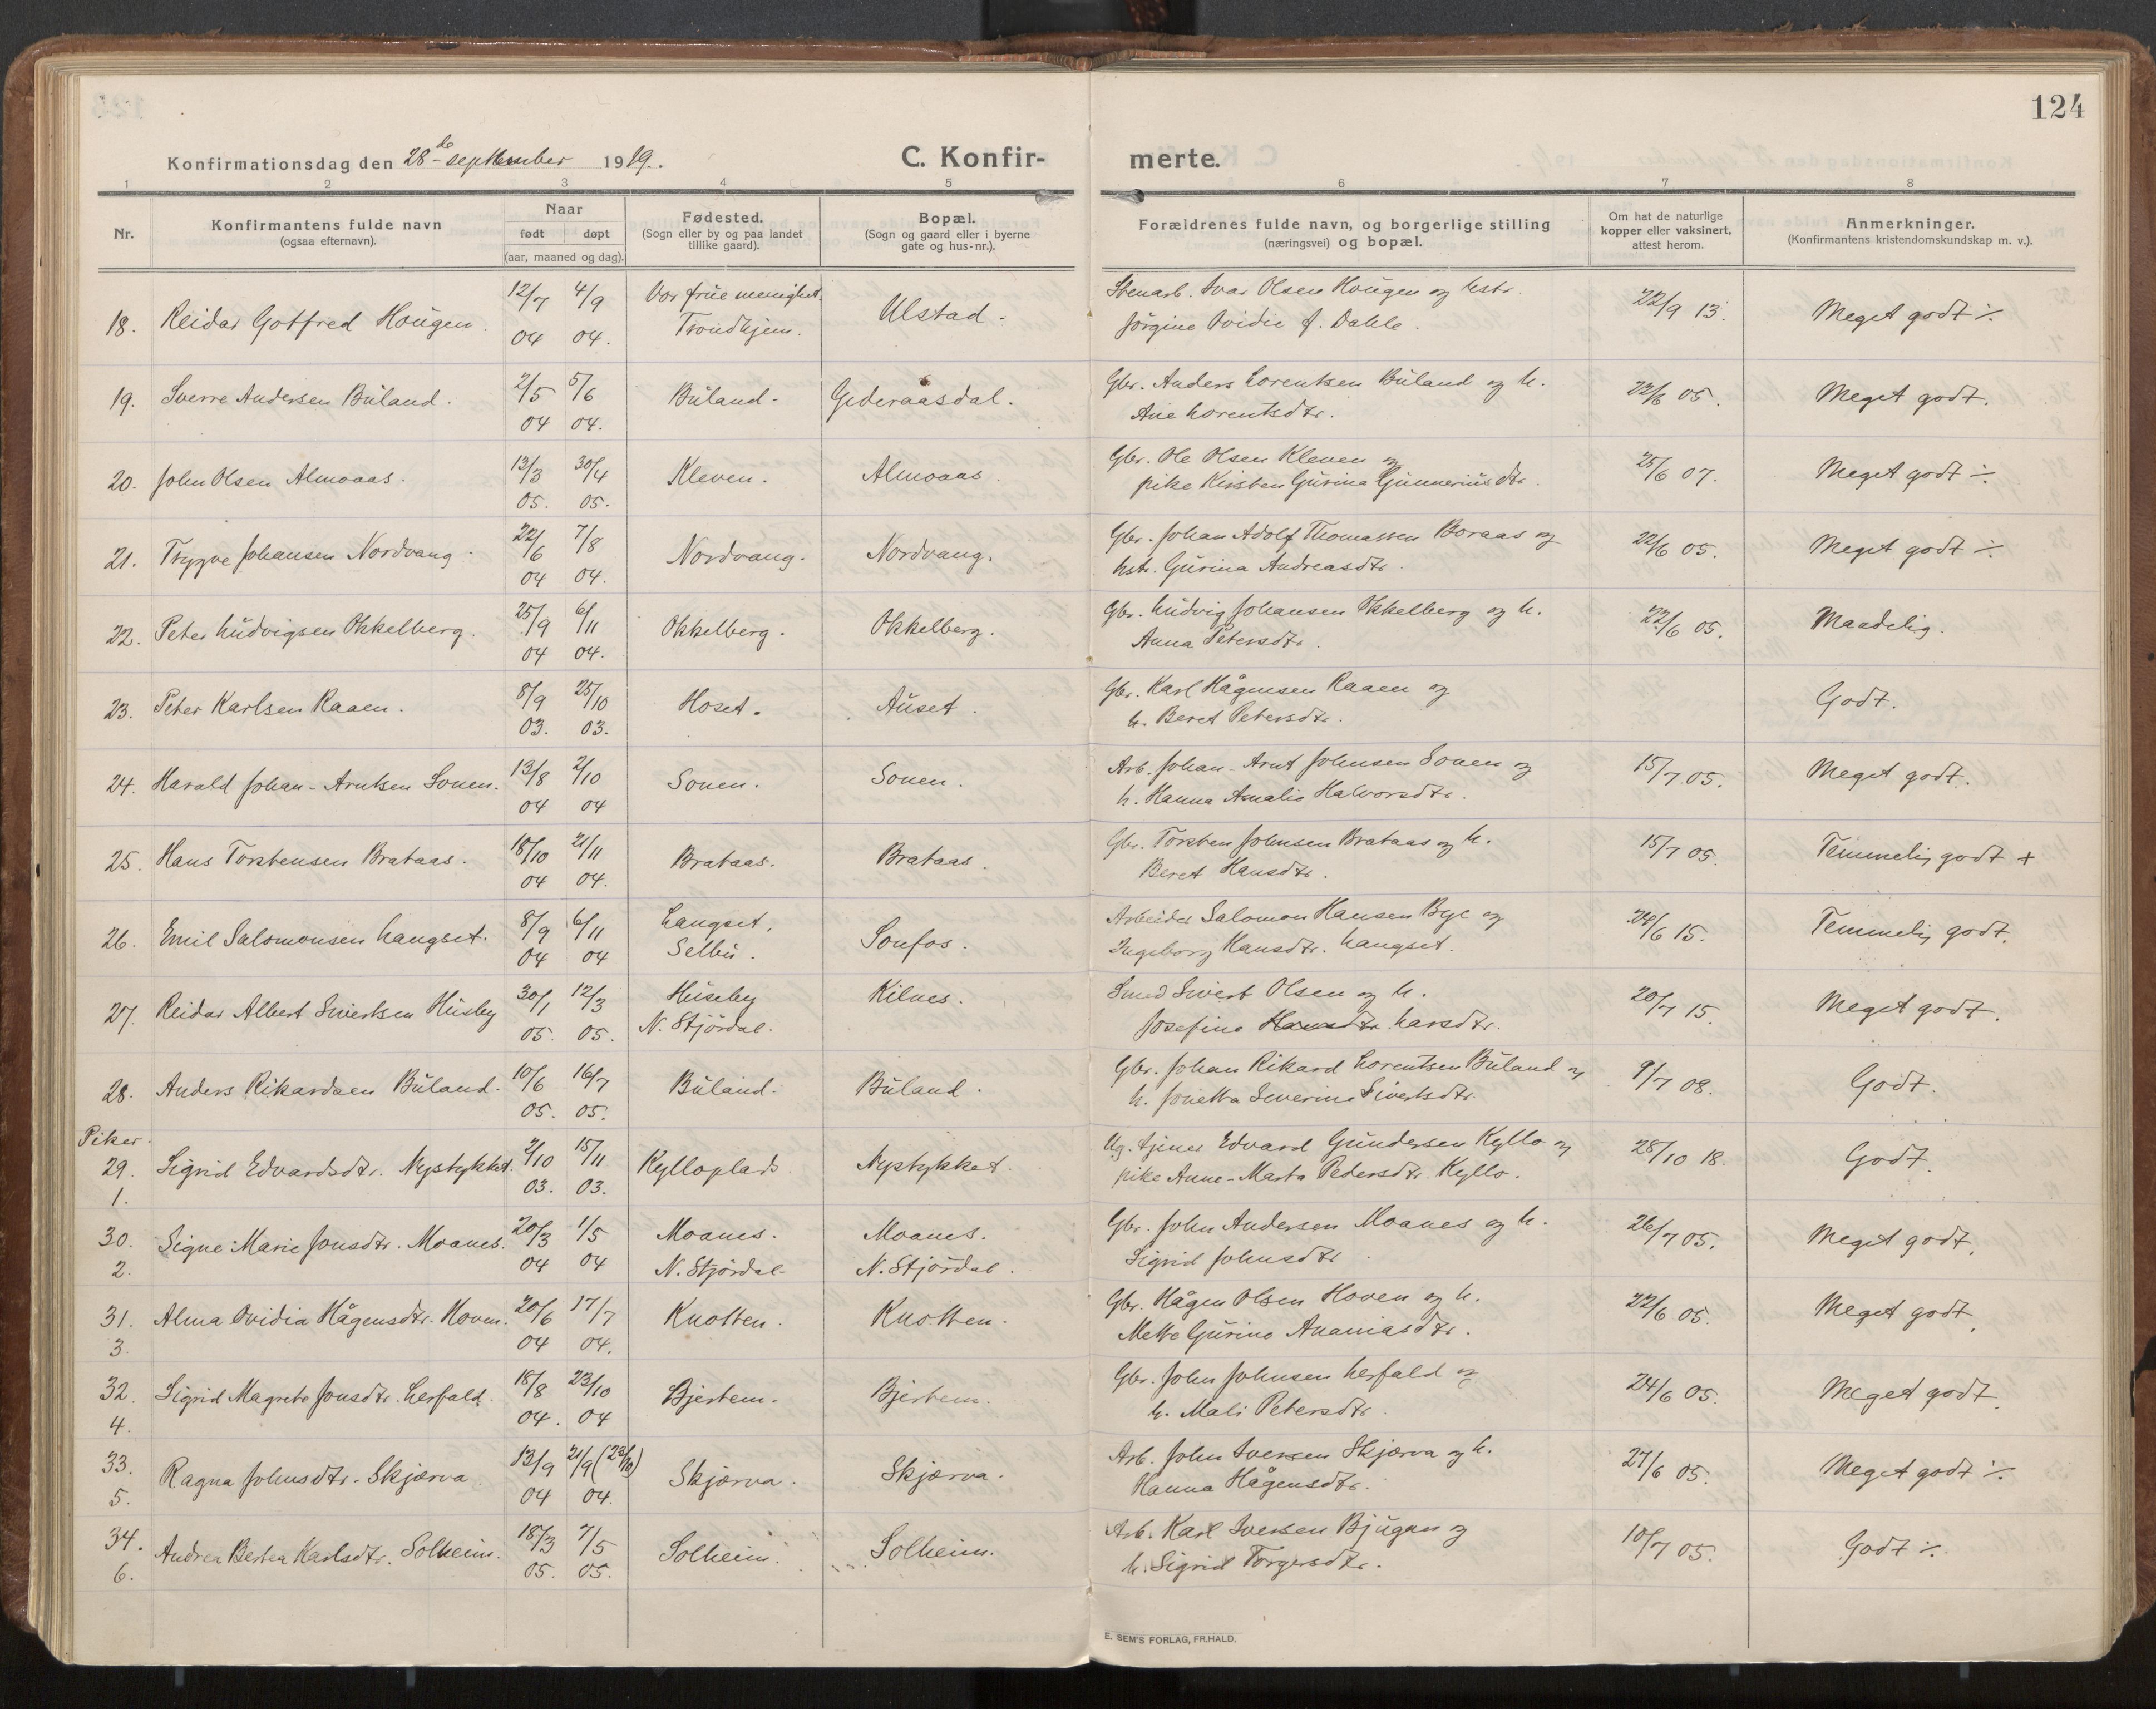 124
Konfirmationsdag den 28de september 1919. C. Konfir- merte.
1 2 3 4 5 6 7 8
Nr.
Konfirmantens fulde navn
(ogsaa efternavn).
Naar
født døpt
(aar, maaned og dag).
Fødested.
(Sogn eller by og paa landet
tillike gaard).
Bopæl.
(Sogn og gaard eller i byerne
gate og hus-nr.).
Forældrenes fulde navn, og borgerlige stilling
(næringsvei) og bopæl.
Om hat de naturlige
kopper eller vaksinert,
attest herom.
Anmerkninger.
(Konfirmantens kristendomskundskap m. v.).
18. Reidar Gotfred Hougen. 12/7 04 4/9 04. Vor frue menighet. Trondhjem. Ulstad. Stenarb. Ivar Olsen Hougen og hstr.
Jørgine Ovidie f. Dahle. 22/9 13. Meget godt ÷
19. Sverre Andersen Būland. 2/5 04 5/6 04. Būland. Gederaasdal. Gbr. Anders Lorentsen Būland og h.
Ane Lorentsdtr. 22/6 05. Meget godt.
20. John Olsen Almoaas. 13/3 05. 30/4 05. Kleven. Almoaas. Gbr. Ole Olsen Kleven og
pike Kirsten Gūrina Gūnneriusdtr. 25/6 07. Meget godt ÷
21. Trygve Johansen Nordvang. 22/6 04 7/8 04. Nordvang. Nordvang. Gbr. Johan Adolf Thomassen Boraas og
hstr. Gūrina Andreasdtr. 22/6 05. Meget godt ÷
22. Peter Lūdvigsen Okkelberg. 25/9 04 6/11 04. Okkelberg. Okkelberg. Gbr. Lūdvig Johansen Okkelberg og h.
Anna Petersdtr. 22/6 05. Maadelig.
23. Peter Karlsen Raaen. 8/9 03. 25/10 03. Hoset. Aūset. Gbr. Karl Hågensen Raaen og
h. Beret Petersdtr. Godt.
24. Harald Johan-Arntsen Sonen. 13/8 04 2/10 04 Sonen. Sonen. Arb. Johan-Arnt Johnsen Sonen og
h. Hanna Amalie Halvorsdtr. 15/7 05. Meget godt.
25. Hans Torstensen Brataas. 18/10 04 21/11 04. Brataas. Brataas. Gbr. Torsten Johnsen Brataas og h.
Beret Hansdtr. 15/7 05. Temmelig godt +
26. Emil Salomonsen Langset. 8/9 04 6/11 04 Langset, Selbū. Sonfos. Arbeider Salomon Hansen Bye og
Ingeborg Hansdtr. Langset. 24/6 15. Temmelig godt.
27. Reidar Albert Sivertsen Hūsby 30/1 05. 12/3 05. Hūseby N. Stjördal. Kilnes. Smed Sivert Olsen og h.
Josefine Hansdtr. Larsdtr. 20/7 15. Meget godt.
28. Anders Rikardsen Būland. 10/6 05. 16/7 05. Būland. Būland. Gbr. Johan Rikard Lorentsen Būland og
h. Jonetta Severine Sivertsdtr. 9/7 08. Godt.
Piker.
29. 1. Sigrid Edvardsdtr. Nystykket. 2/10 03. 15/11 03. Kylloplads. Nystykket. Ug. tjener Edvard Gūndersen Kyllo og
pike Anne-Marta Pedersdtr. Kyllo. 28/10 18. Godt.
30. 2. Signe Marie Jonsdtr. Moanes. 20/3 04 1/5 04 Moanes. N. Stjördal. Moanes. N. Stjördal. Gbr. John Andersen Moanes og h.
Sigrid Johnsdtr. 26/7 05. Meget godt.
31. 3. Alma Ovidia Hågensdtr. Hoven. 20/6 04 17/7 04. Knotten. Knotten. Gbr. Hågen Olsen Hoven og h.
Mette Gūrine Ananiasdtr. 22/6 05. Meget godt.
32. 4. Sigrid Magrete Jonsdtr. Lerfald. 18/8 04. 23/10 04 Bjertem. Bjertem. Gbr. John Johnsen Lerfald og
h. Mali Petersdtr. 24/6 05. Meget godt.
33. 5. Ragna Johnsdtr. Skjærva. 13/9 04 21/9 (23/10) 04. Skjærva. Skjærva. Arb. John Iversen Skjærva og h.
Hanna Hågensdtr. 27/6 05. Meget godt ÷
34. 6. Andrea Bertea Karlsdtr. Solheim. 18/3 05. 7/5 05. Solheim. Solheim. Arb. Karl Iversen Bjūgan og
h. Sigrid Torgersdtr. 10/7 05. Godt ÷
E. SEM'S FORLAG, FR.HALD.